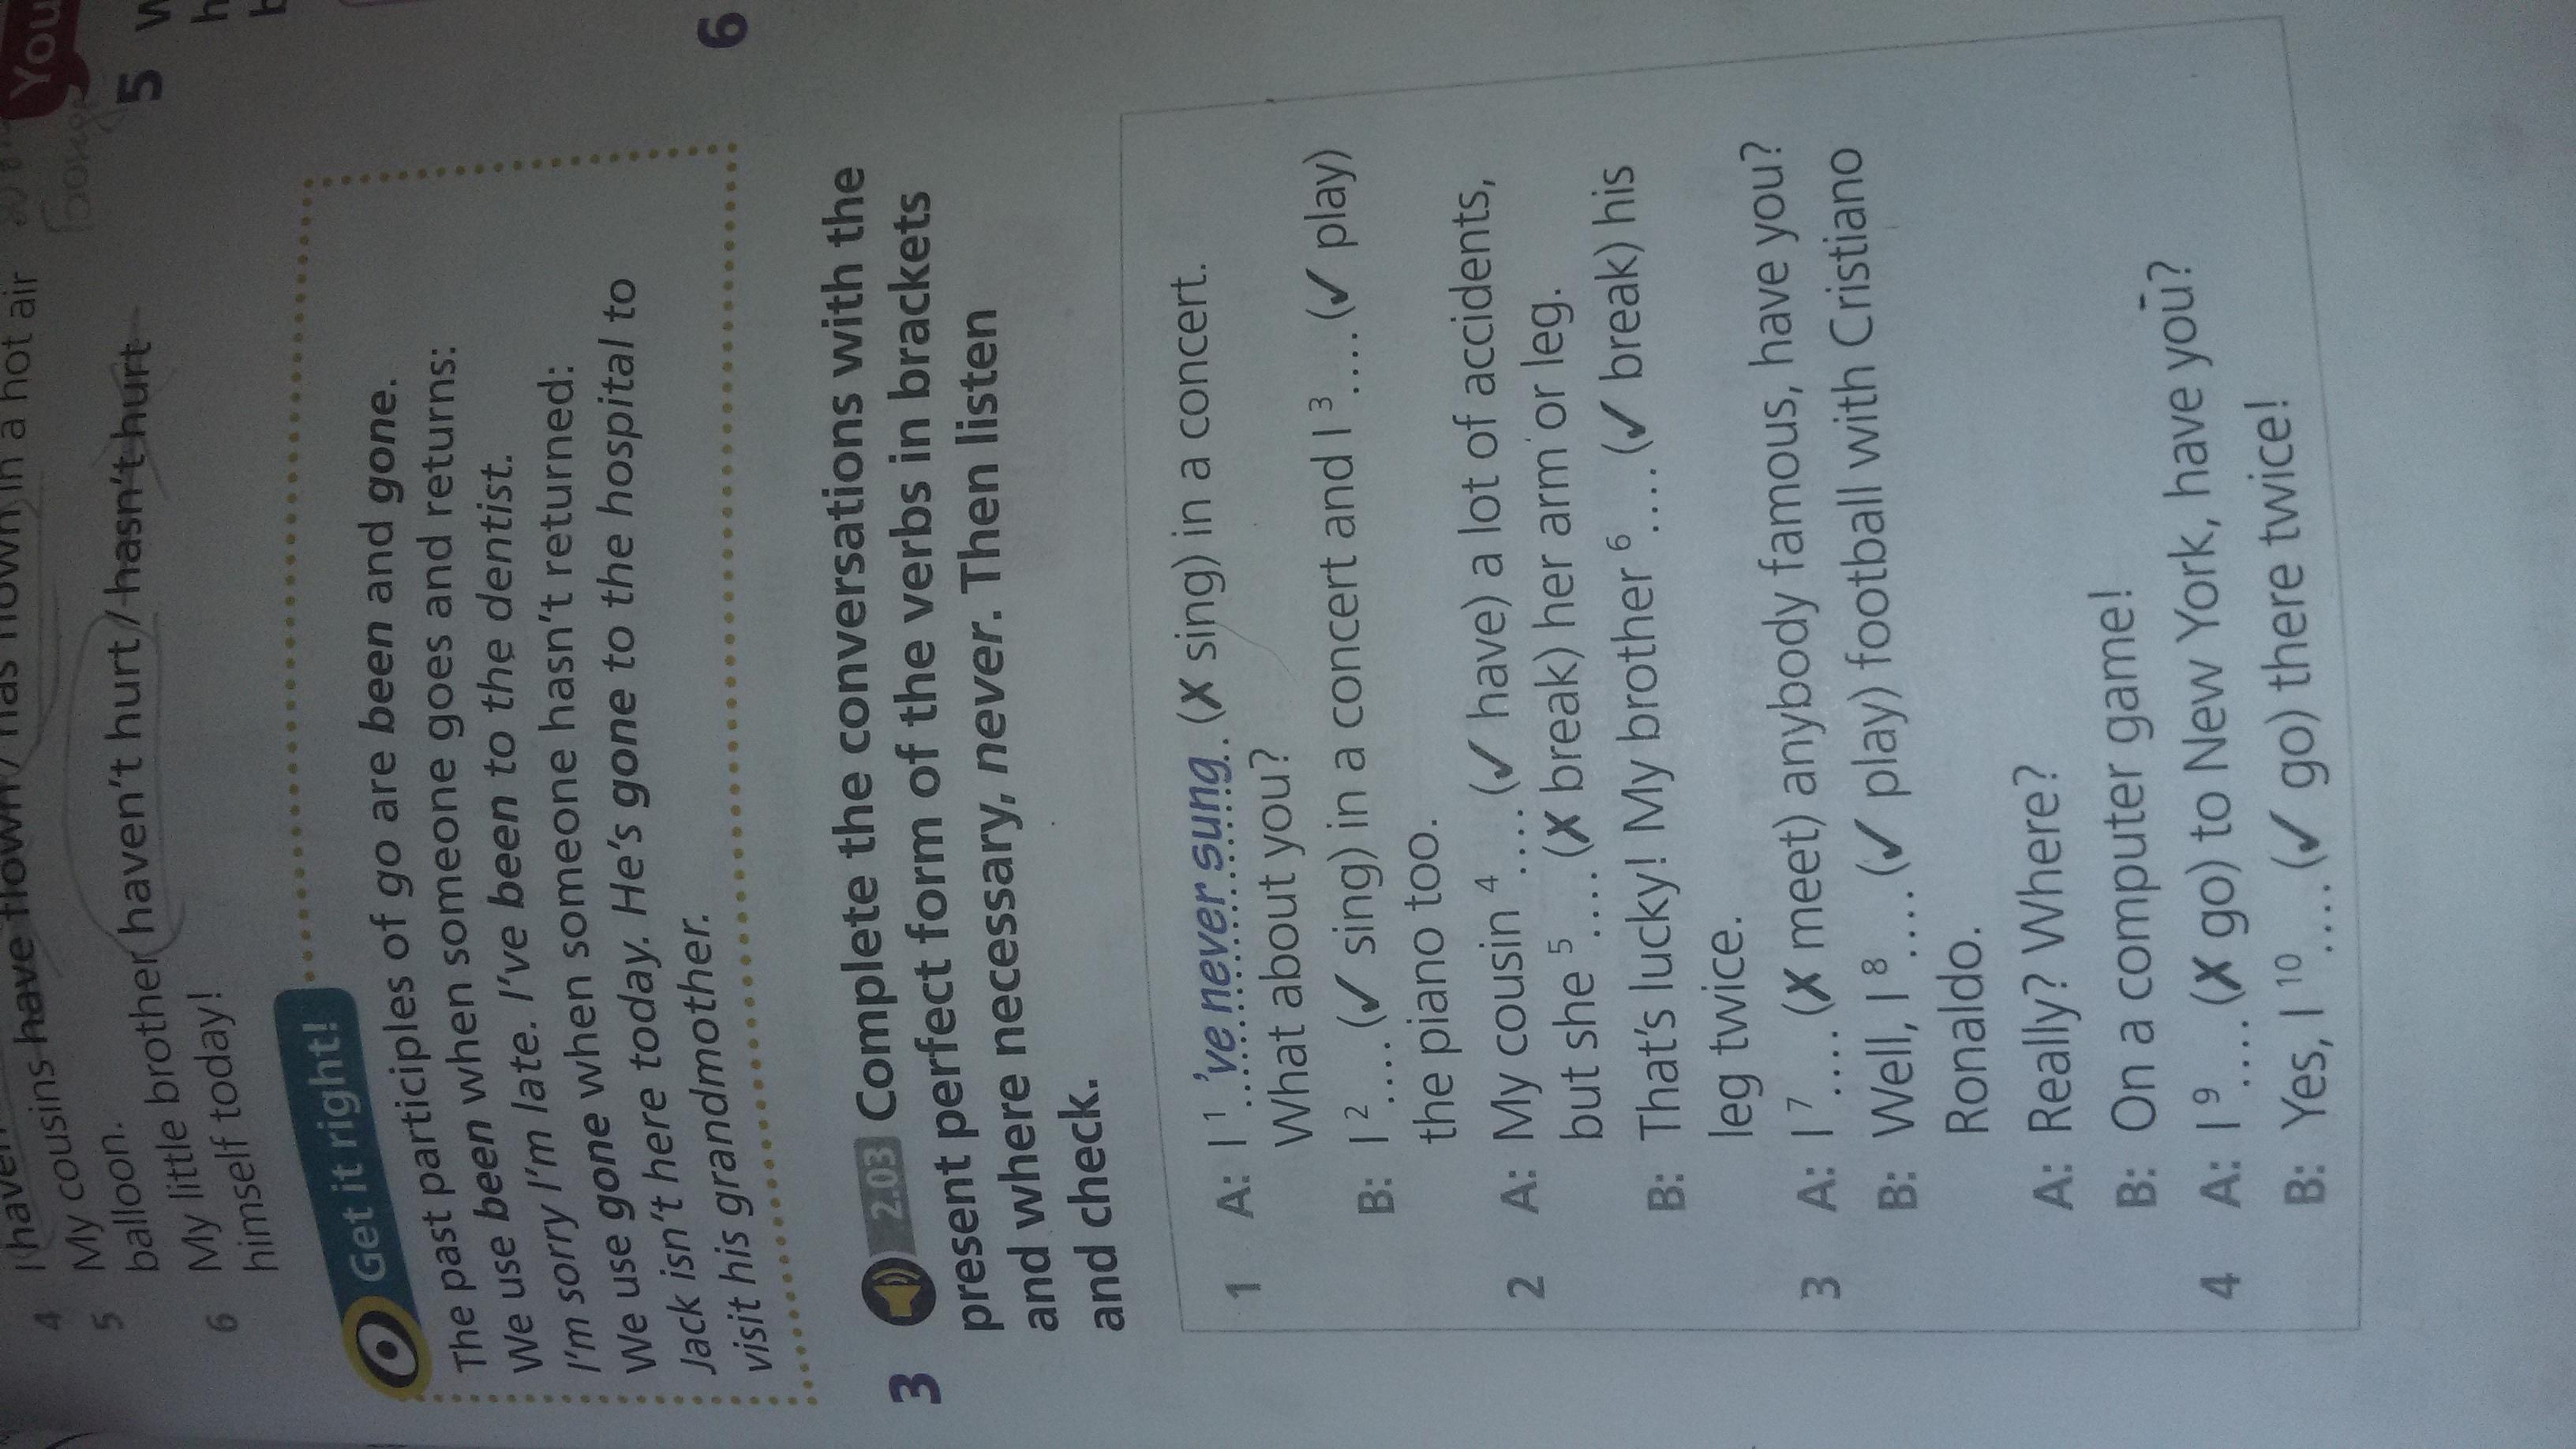 4 I haven
My cousins have flown / has flown in a hot air
5 balloon.
My little brother haven't hurt / hasn't hurt
6 himself today!
Get it right!
The past participles of go are been and gone.
We use been when someone goes and returns:
I'm sorry I'm late. I've been to the dentist.
We use gone when someone hasn't returned:
Jack isn't here today. He's gone to the hospital to
visit his grandmother.
3 2.03 Complete the conversations with the
present perfect form of the verbs in brackets
and where necessary, never. Then listen
and check.
1 A: I 1 've never sung. (✗ sing) in a concert.
What about you?
B: I 2 .... (✓ sing) in a concert and I 3 .... (✓ play)
the piano too.
2 A: My cousin 4 .... (✓ have) a lot of accidents,
but she 5 .... (✗ break) her arm or leg.
B: That's lucky! My brother 6 .... (✓ break) his
leg twice.
3 A: I 7 .... (✗ meet) anybody famous, have you?
B: Well, I 8 .... (✓ play) football with Cristiano
Ronaldo.
A: Really? Where?
B: On a computer game!
4 A: I 9 .... (✗ go) to New York, have you?
B: Yes, I 10 .... (✓ go) there twice!
You
5 W
h
b
6